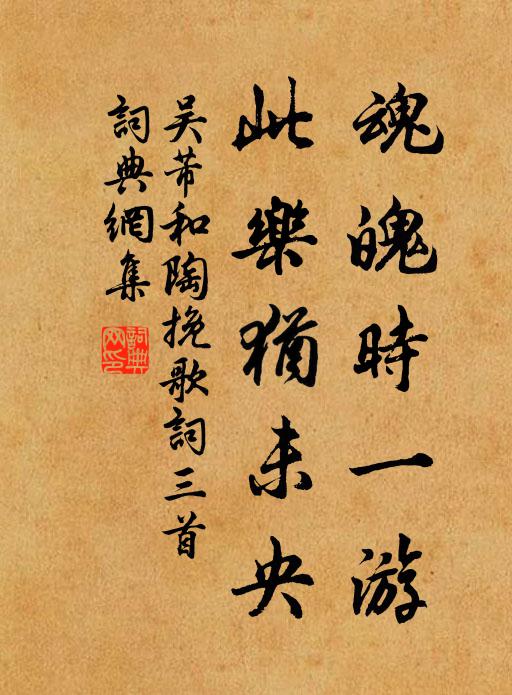 魂魄時一游
此樂猶未央
吴芾和陶挽歌詞三首
詞典網集
詞典网印